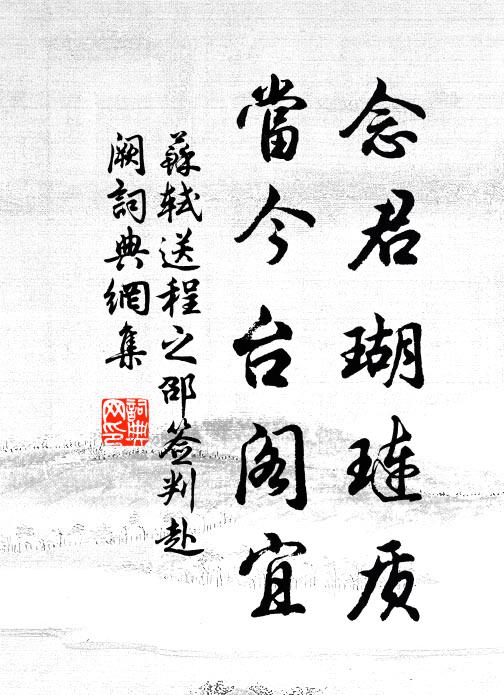 念君瑚琏质
當今台阁宜
蘇轼送程之邵签判赴
阙詞典網集
詞典網印